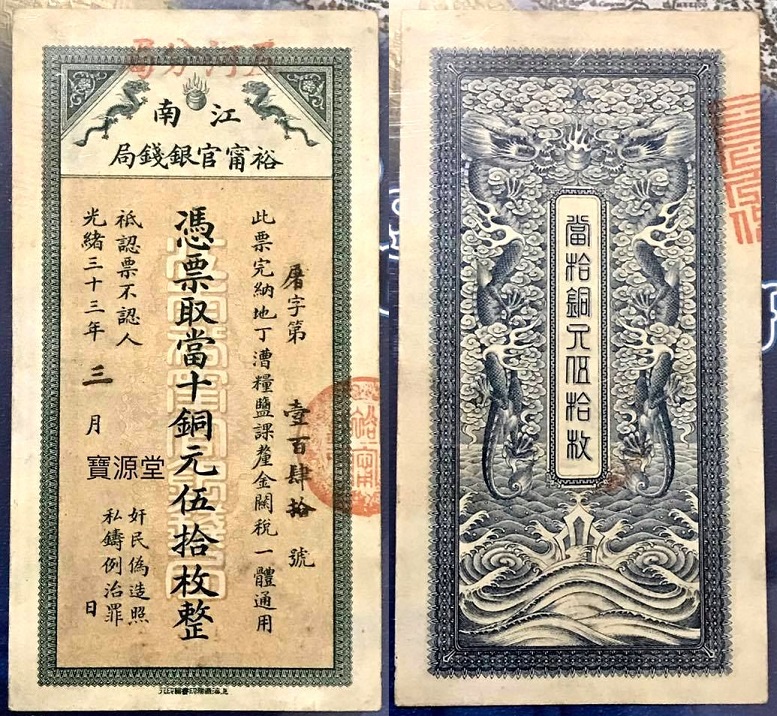 分局
江南
裕甯官銀錢局
屠字第壹百肆拾號
此票完納地丁漕糧鹽課釐金關稅一體通用
憑票取當十銅元伍拾枚整
祗認票不認人
光緒三十三年三月日
奸民偽造照
私鑄例治罪
寶源堂
裕甯
當拾銅元伍拾枚